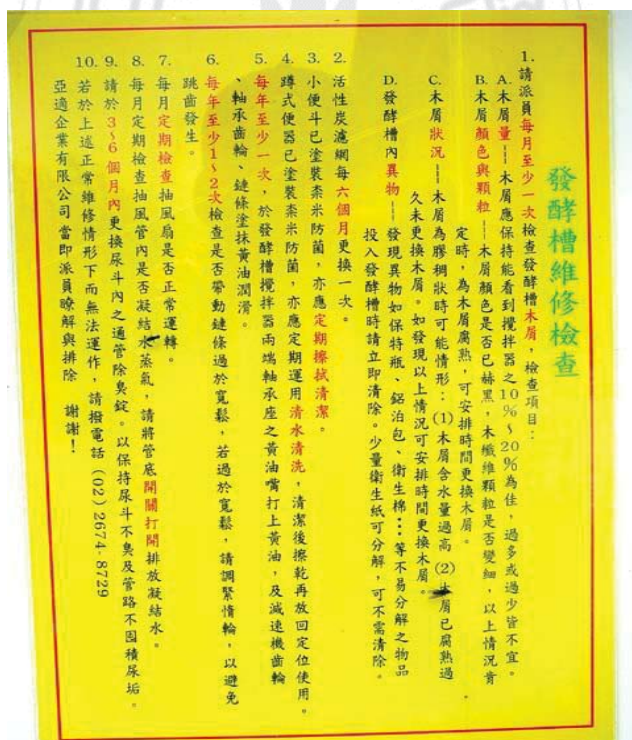 發酵槽維修檢查
1.請派員每月至少一次檢查發酵槽木屑，檢查項目：
A.木屑量——木屑應保持能看到攪拌器之10%～20%為佳，過多或過少皆不宜。
B.木屑顏色與顆粒——木屑顏色是否已赫黑，木纖維顆粒是否變細，以上情況肯
定時，為木屑腐熟，可安排時間更換木屑。
C.木屑狀況——木屑為膠稠狀時可能情形：(1)木屑含水量過高(2)木屑已腐熟過
久未更換木屑。如發現以上情況可安排時間更換木屑。
D.發酵槽內異物——發現異物如保特瓶、鋁泊包、衛生棉…等不易分解之物品
投入發酵槽時請立即清除。少量衛生紙可分解，可不需清除。
2.活性炭濾網每六個月更換一次。
3.小便斗已塗裝奈米防菌，亦應定期擦拭清潔。
4.蹲式便器已塗裝奈米防菌，亦應定期運用清水清洗，清潔後擦乾再放回定位使用。
5.每年至少一次，於發酵槽攪拌器兩端軸承座之黃油嘴打上黃油，及減速機齒輪
、軸承齒輪、鏈條塗抹黃油潤滑。
6.每年至少1～2次檢查是否帶動鏈條過於寬鬆，若過於寬鬆，請調緊惰輪，以避免
跳齒發生。
7.每月定期檢查抽風扇是否正常運轉。
8.每月定期檢查抽風管內是否凝結水蒸氣，請將管底開關打開排放凝結水。
9.請於3～6個月內更換尿斗內之通管除臭錠。以保持尿斗不臭及管路不囤積尿垢。
10.若於上述正常維修情形下而無法運作，請撥電話(02)2674-8729
亞適企業有限公司當即派員瞭解與排除　謝謝！